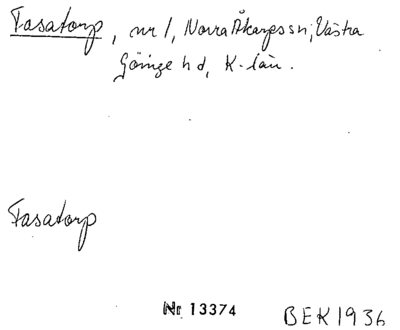 Tasatorp, nr 1, Norra Åkarps sn, Västra
Göinge hd, K-län.
Tasatorp
Nr 13374
BEK 1936